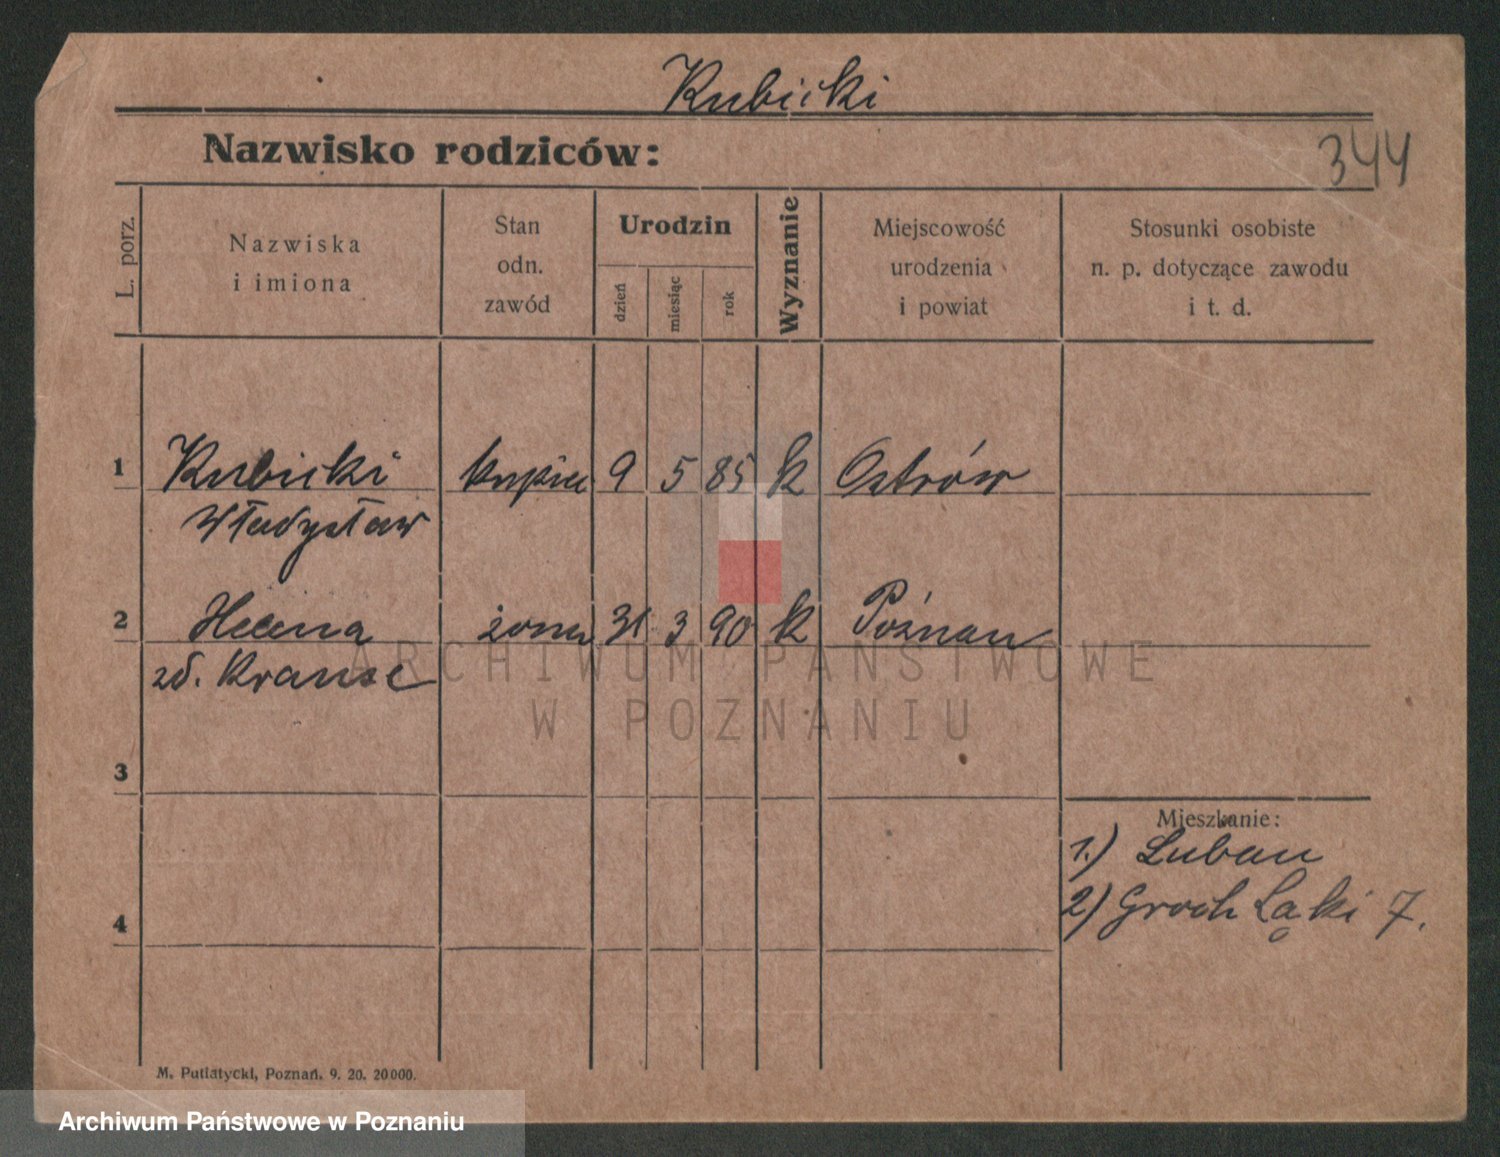 Kubicki
Nazwisko rodziców:
344
L. porz.
Nazwiska
i imiona
Stan
odn.
zawód
Urodzin
dzień
miesiąc
rok
Wyznanie
Miejscowość
urodzenia
i powiat
Stosunki osobiste
n. p. dotyczące zawodu
i t. d.
1 Kubicki kupiec 9 5 85 k Ostrów
Władysław
2 Helena żona 31 3 90 k Poznan
zd. Krause
ARCHIWUM PAŃSTWOWE
W POZNANIU
3
Mieszkanie:
1.) Luban
2) Groch Łąki 7.
4
M. Putiatycki, Poznań. 9. 20. 20000.
Archiwum Państwowe w Poznaniu